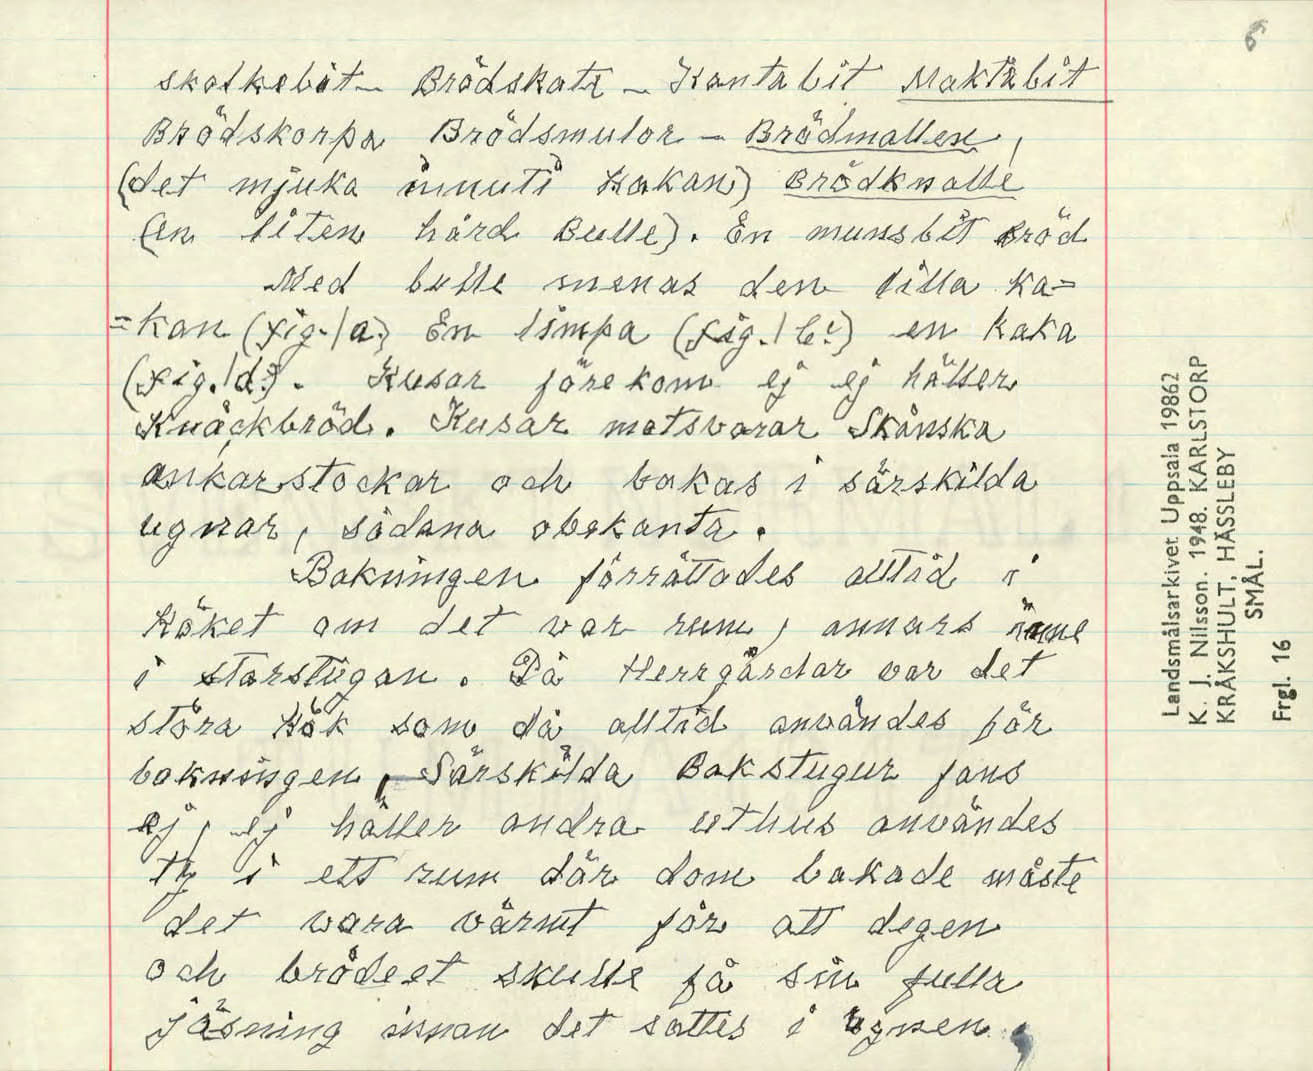 6
skalkebit - Brödskate - Kantabit Maktabit
Brödskorpa Brödsmulor - Brödmallen,
(det mjuka innuti Kakan) Brödknalle
(en liten hård Bulle). En munsbit Bröd
Med bulle menas den lilla ka=
=kan (fig. 1 a.) En limpa (fig. 1 b.) en kaka
(fig. 1 d.). Kusar förekom ej ej häller
Knäckbröd. Kusar motsvarar Skånska
ankarstockar och bakas i särskilda
ugnar, sådana obekanta.
Bakningen förrättades alltid i
Köket om det var rum, annars inne
i storstugan. På Herrgårdar var det
stora Kök som då alltid användes för
bakningen, Särskilda Bakstugur fans
ej, ej häller andra uthus användes
ty i ett rum där dom bakade måste
det vara värmt för att degen
och brödeet skulle få sin fulla
jäsning innan det sattes i ugnen.
Landsmålsarkivet Uppsala 19862
K. J. Nilsson. 1948. KARLSTORP
KRÅKSHULT, HÄSSLEBY
SMÅL.
Frgl. 16